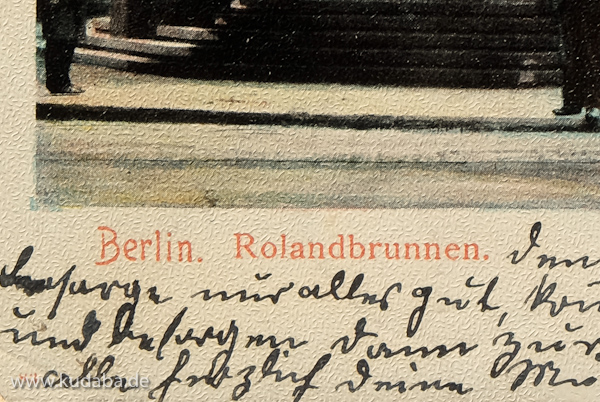 Berlin. Rolandbrunnen.
den
besorge nur alles gut,
und besorgen dann zur
alle herzlich deine
www.kudaba.de